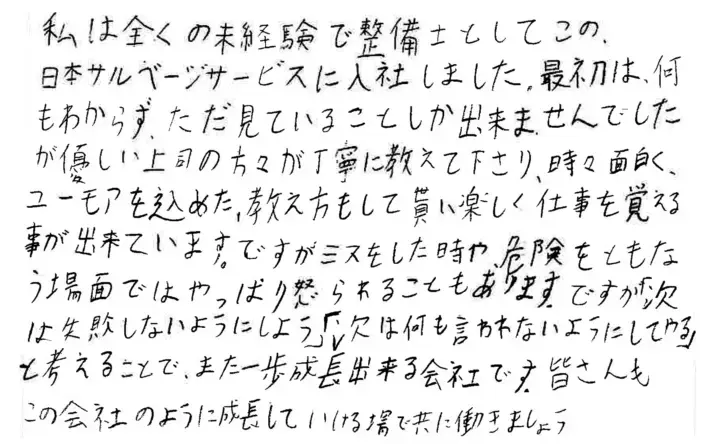 私は全くの未経験で整備士としてこの、
日本サルベージサービスに入社しました。最初は、何
もわからず、ただ見ていることしか出来ませんでした
が優しい上司の方々が丁寧に教えて下さり、時々面白く、
ユーモアを込めた、教え方もして貰い楽しく仕事を覚える
事が出来ています。ですがミスをした時や、危険をともな
う場面ではやっぱり怒られることもあります。ですが「次
は失敗しないようにしよう」「次は何も言われないようにしてやる」
と考えることで、また一歩成長出来る会社です。皆さんも
この会社のように成長していける場で共に働きましょう